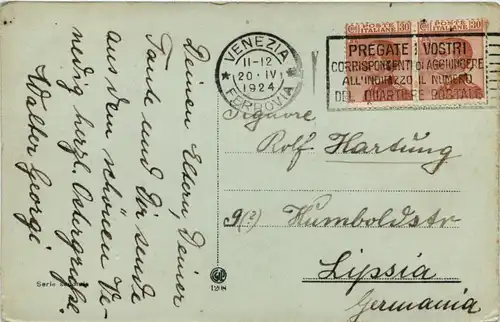 Deinen Eltern, Deiner
Tante und Dir sende
aus dem schönen Ve-
nedig herzl. Ostergrüße.
Walter Georgi
VENEZIA
11-12
20·IV
1924
FERROVIA
POSTE ITALIANE 30
POSTE ITALIANE 30
PREGATE I VOSTRI
CORRISPONDENTI DI AGGIUNGERE
ALL'INDIRIZZO IL NUMERO
DEL QUARTIERE POSTALE
Signore
Rolf Hartung
9(?) Humboldtstr
Lipsia
Germania
Serie